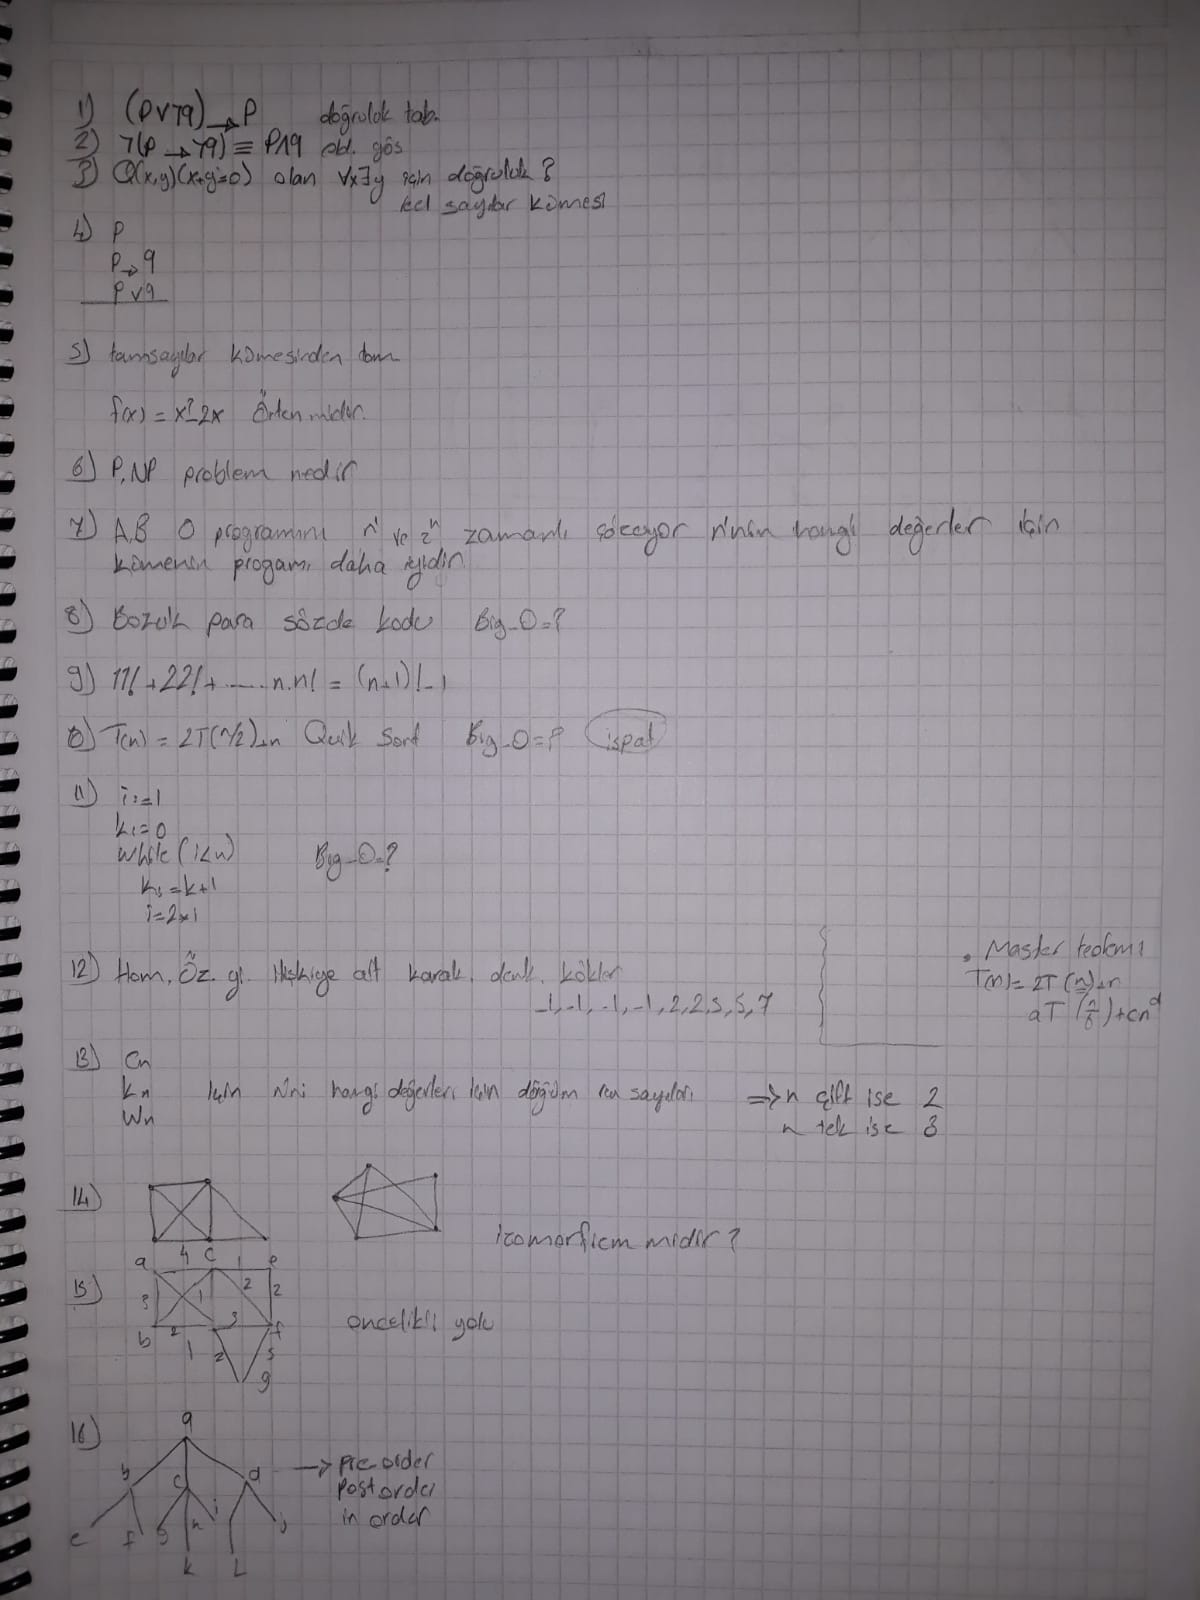 1) (P∨¬q)→P doğruluk tab.
2) ¬(p→¬q)≡P∧q old. gös
3) Q(x,y)(x+y=0) olan ∀x∃y için doğruluk?
reel sayılar kümesi
4) P
P→q
P∨q
5) tamsayılar kümesinden tam
f(x)=x²-2x Örten midir.
6) P,NP problem nedir
7) A,B O programını ve 2ⁿ zamanlı çözüyor n'nin hangi değerler için
kümenin progamı daha iyidir
8) Bozuk para sözde kodu Big-O=?
9) 11!+22!+.....n.n! = (n+1)!-1
10) T(n) = 2T(n/2)+n Quik Sort Big-O=? ispat
11) i:=1
k:=0
while(i<n) Big-O=?
k:=k+1
i=2*i
12) Hom. Öz. yi. ilişkiye ait karak. denk. kökler
-1,-1,-1,-1,2,2,5,5,7
. Master teoremi
T(n)= 2T(n/2)+n
aT(n/b)+cn^d
13) Cn
Kn için n'ni hangi değerleri için düğüm sayıları ⇒ n çift ise 2
Wn n tek ise 3
14) izomorfizm midir?
a 4 c 1 e
15) 3 1 2 2
b 2 3 f öncelikli yolu
1 2 5
g
16) a
b c d → pre order
post order
e f g h i j in order
k L